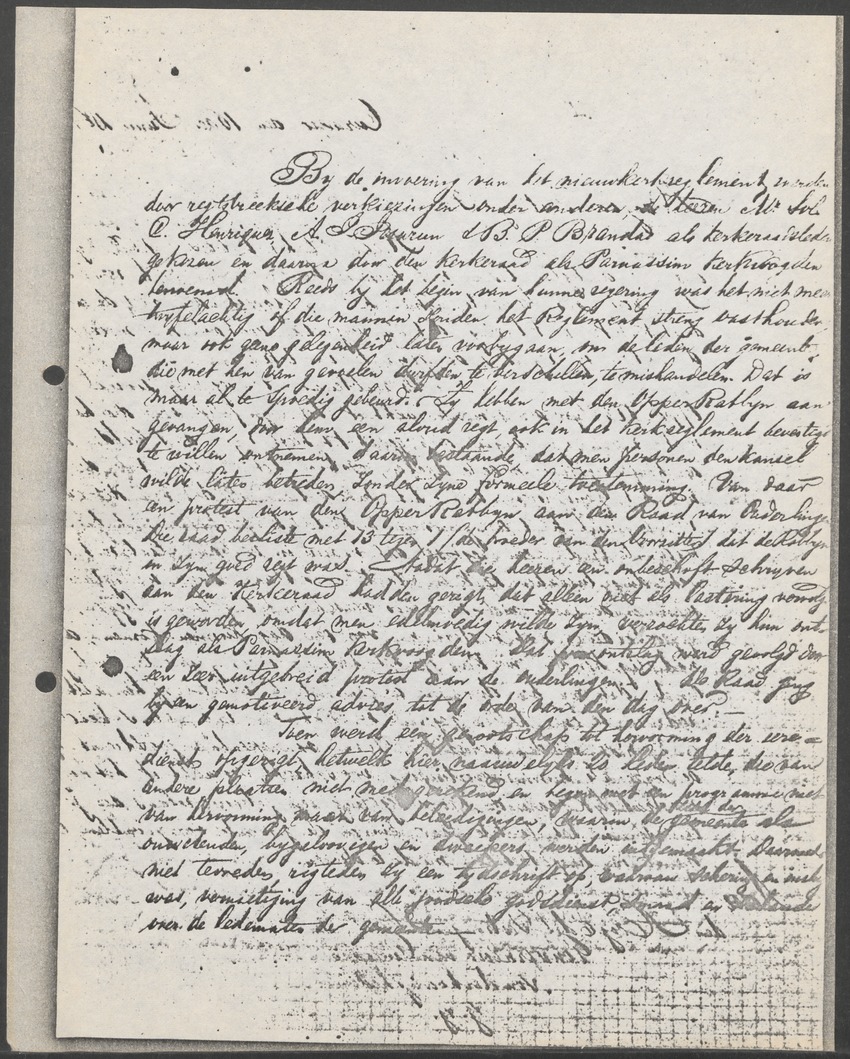 By de invoering van het nieuw kerkreglement werden
door regtstreeksche verkiezingen onder anderen, de Heeren Mr. Sol.
C. Henriquez, A. J. & B. P. Brandao als kerkeraadsleden
gekozen en daarna door den kerkeraad als Parnassim kerkvoogden
benoemd. Reeds by het begin van hunne regering was het niet meer
twyfelachtig of die mannen zouden het Reglement streng vasthouden,
maar ook geene gelegenheid laten voorbygaan, om de leden der gemeente
die met hen van gevoelen durfden te verschillen, te mishandelen. Dat is
maar al te spoedig gebeurd. Zy hebben met den Opper Rabbyn aan-
gevangen, door hem een aloud regt ook in het kerkreglement bevestigd
te willen ontnemen, daarin bestaande, dat men personen den kansel
wilde laten betreden zonder zyne formeele toestemming. Van daar
een protest van den Opper Rabbyn aan den Raad van Ouderlingen
Die raad besliste met 13 tegen 1 (de broeder van den Voorzitter) dat de Rabbyn
in zyn goed regt was. Nadat die heeren een onbeschoft schryven
aan den Kerkeraad hadden gerigt, dat alleen niet als lastering vervolgd
is geworden, omdat men edelmoedig wilde zyn, verzochten zy hun ont-
slag als Parnassim kerkvoogden. Dat ontslag werd gevolgd door
een zeer uitgebreid protest aan de ouderlingen. De Raad ging
by een gemotiveerd advies, tot de orde van den dag over.
Toen werd een genootschap tot hervorming der eere-
dienst opgerigt, hetwelk hier naauwelyks 20 leden telde, die van
andere plaatsen niet medegerekend en begon met een programma niet
van hervorming maar van beleedigingen, waarin de gemeente als
onwetenden, bygeloovigen en dweepers werden uitgemaakt. Daarmede
niet tevreden, rigteden zy een tydschrift op, waarvan schering en inslag
was, vernietiging van alle joodsche godsdienst, smaad en schande
over de ledematen der gemeente.